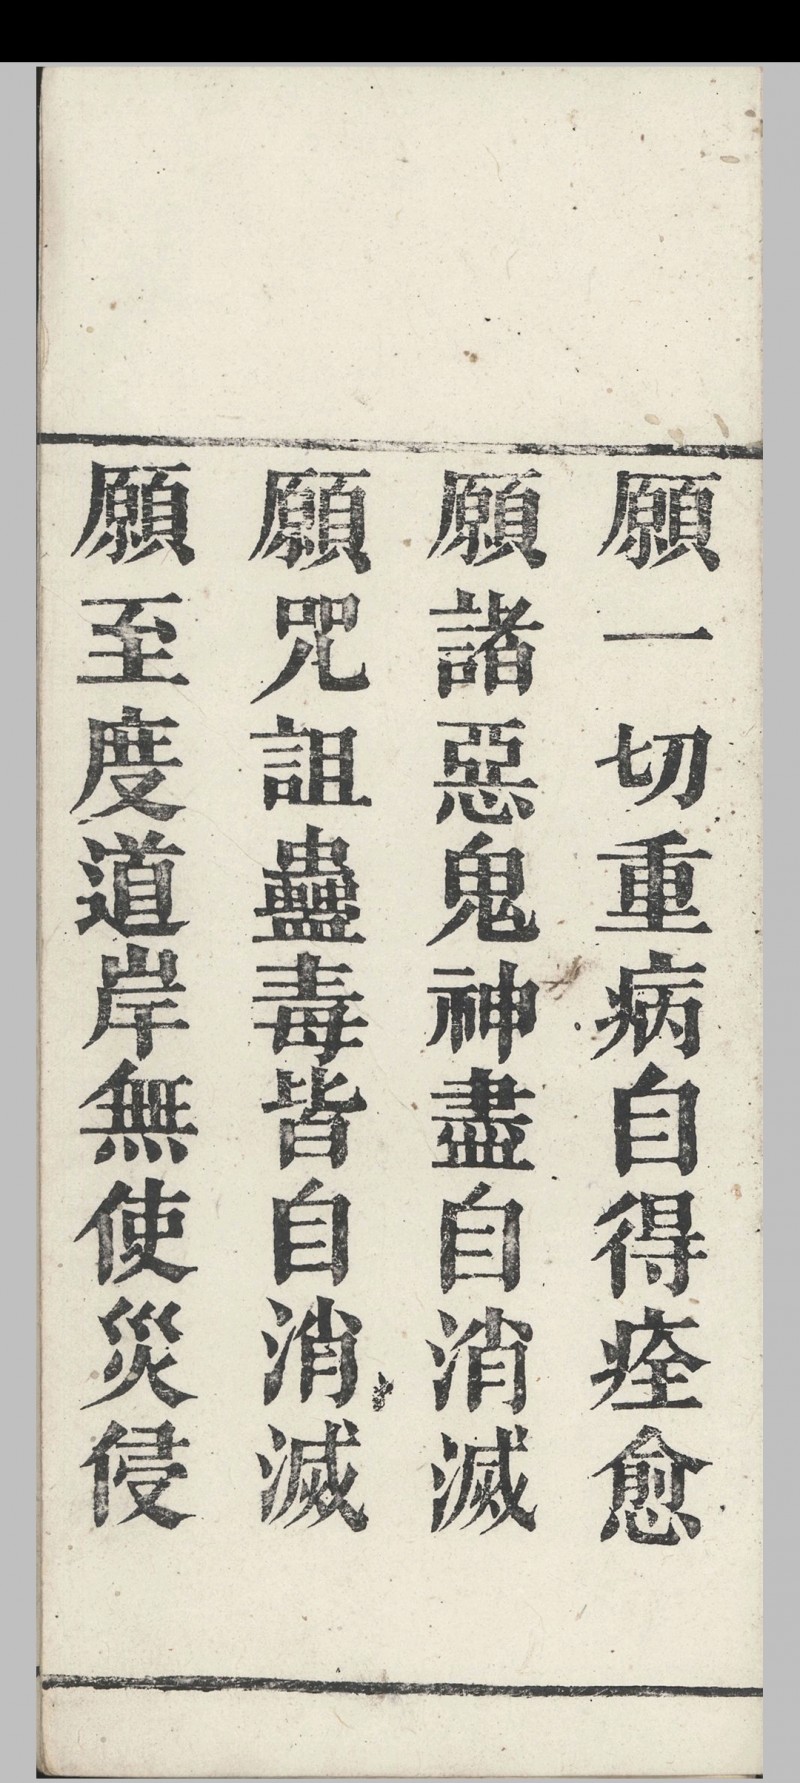 願一切重病自得痊愈
願諸惡鬼神盡自消滅
願咒詛蠱毒皆自消滅
願至度道岸無使災侵